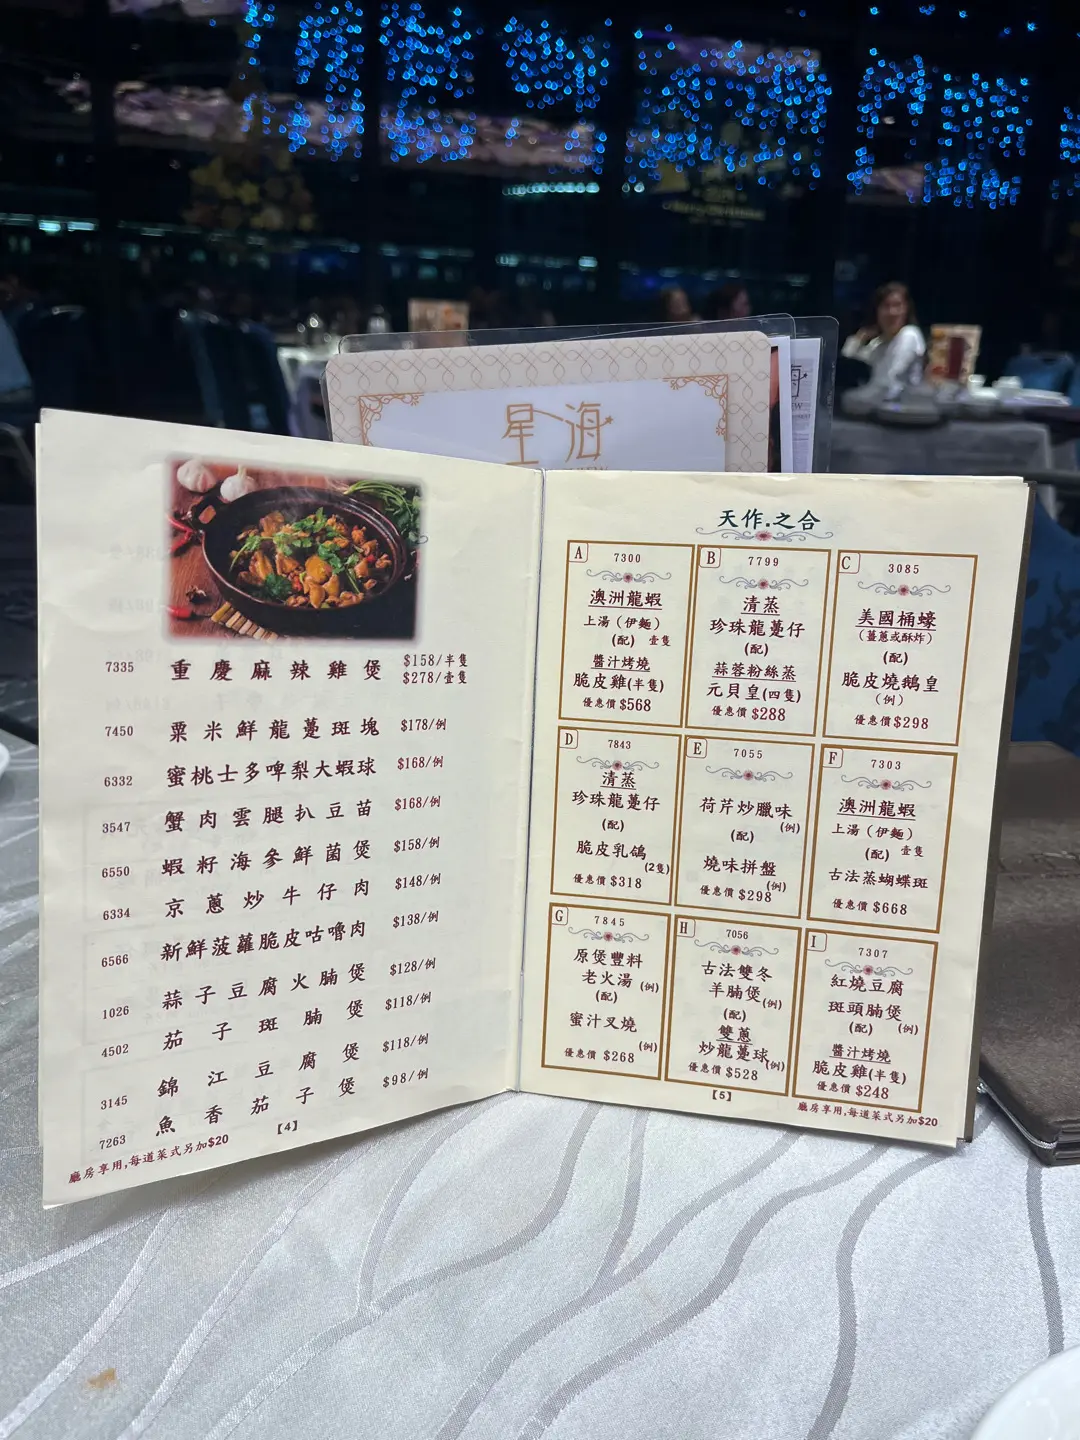 星海
7335 重慶麻辣雞煲 $158/半隻
$278/壹隻
7450 粟米鮮龍躉斑塊 $178/例
6332 蜜桃士多啤梨大蝦球 $168/例
3547 蟹肉雲腿扒豆苗 $168/例
6550 蝦籽海參鮮菌煲 $158/例
6334 京蔥炒牛仔肉 $148/例
6566 新鮮菠蘿脆皮咕嚕肉 $138/例
1026 蒜子豆腐火腩煲 $128/例
4502 茄子斑腩煲 $118/例
3145 錦江豆腐煲 $118/例
7263 魚香茄子煲 $98/例
廳房享用,每道菜式另加$20
【4】
天作.之合
A 7300
澳洲龍蝦
上湯（伊麵）
(配) 壹隻
醬汁烤燒
脆皮雞(半隻)
優惠價 $568
B 7799
清蒸
珍珠龍躉仔
(配)
蒜蓉粉絲蒸
元貝皇(四隻)
優惠價 $288
C 3085
美國桶蠔
（薑蔥或酥炸）
(配)
脆皮燒鵝皇
（例）
優惠價$298
D 7843
清蒸
珍珠龍躉仔
(配)
脆皮乳鴿
(2隻)
優惠價 $318
E 7055
荷芹炒臘味
(例)
(配)
燒味拼盤
(例)
優惠價 $298
F 7303
澳洲龍蝦
上湯（伊麵）
(配) 壹隻
古法蒸蝴蝶斑
優惠價 $668
G 7845
原煲豐料
老火湯 (例)
(配)
蜜汁叉燒
(例)
優惠價 $268
H 7056
古法雙冬
羊腩煲(例)
(配)
雙蔥
炒龍躉球(例)
優惠價$528
I 7307
紅燒豆腐
斑頭腩煲
(配) (例)
醬汁烤燒
脆皮雞(半隻)
優惠價 $248
【5】
廳房享用,每道菜式另加$20